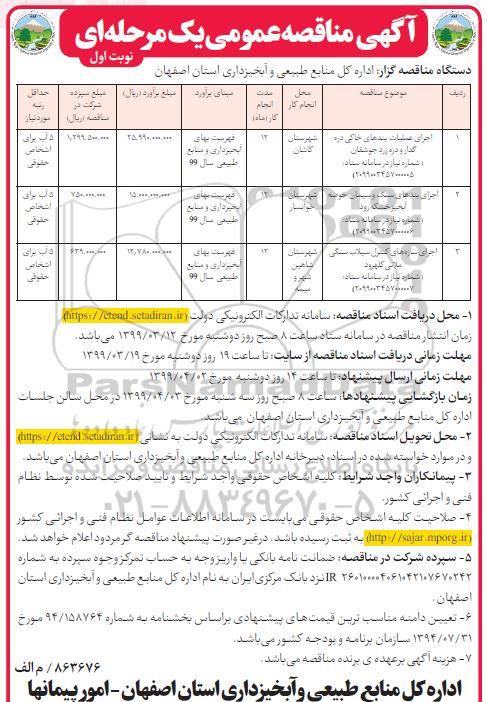 آگهی مناقصه عمومی یک مرحله‌ای
نوبت اول
دستگاه مناقصه گزار: اداره کل منابع طبیعی و آبخیزداری استان اصفهان
ردیف | موضوع مناقصه | محل انجام کار | مدت انجام کار (ماه) | مبنای برآورد | مبلغ برآورد (ریال) | مبلغ سپرده شرکت در مناقصه (ریال) | حداقل رتبه موردنیاز
۱ | اجرای عملیات بندهای خاکی دره گدار و دره زرد جوشقان ( شماره نیاز در سامانه ستاد: ۲۰۹۹۰۰۳۴۵۷۰۰۰۰۰۶) | شهرستان کاشان | ۱۲ | فهرست بهای آبخیزداری و منابع طبیعی سال 99 | ۲۵.۹۹۰.۰۰۰.۰۰۰ | ۱.۲۹۹.۵۰۰.۰۰۰ | ۵ آب برای اشخاص حقوقی
۲ | اجرای بندهای سنگ و سیمان حوضه آبخیز خشکه رود ( شماره نیاز در سامانه ستاد: ۲۰۹۹۰۰۳۴۵۷۰۰۰۰۰۵) | شهرستان خوانسار | ۱۲ | فهرست بهای آبخیزداری و منابع طبیعی سال 99 | ۱۵.۰۰۰.۰۰۰.۰۰۰ | ۷۵۰.۰۰۰.۰۰۰ | ۵ آب برای اشخاص حقوقی
۳ | اجرای سازه‌های کنترل سیلاب سنگی ملاتی کلهرود ( شماره نیاز در سامانه ستاد: ۲۰۹۹۰۰۳۴۵۷۰۰۰۰۰۷) | شهرستان شاهین شهر و میمه | ۱۲ | فهرست بهای آبخیزداری و منابع طبیعی سال 99 | ۱۲.۷۸۰.۰۰۰.۰۰۰ | ۶۳۹.۰۰۰.۰۰۰ | ۵ آب برای اشخاص حقوقی
۱- محل دریافت اسناد مناقصه: سامانه تدارکات الکترونیکی دولت (https://etend.setadiran.ir)
زمان انتشار مناقصه در سامانه ستاد ساعت ۸ صبح روز دوشنبه مورخ ۱۳۹۹/۰۳/۱۲ می‌باشد.
مهلت زمانی دریافت اسناد مناقصه از سایت: تا ساعت ۱۹ روز دوشنبه مورخ ۱۳۹۹/۰۳/۱۹
مهلت زمانی ارسال پیشنهاد: تا ساعت ۱۴ روز دوشنبه مورخ ۱۳۹۹/۰۴/۰۲
زمان بازگشایی پیشنهادها: ساعت ۸ صبح روز سه شنبه مورخ ۱۳۹۹/۰۴/۰۳ در محل سالن جلسات
اداره کل منابع طبیعی و آبخیزداری استان اصفهان می‌باشد.
۲- محل تحویل اسناد مناقصه: سامانه تدارکات الکترونیکی دولت به نشانی (https://etend.setadiran.ir)
و در موارد خواسته شده در اسناد، دبیرخانه اداره کل منابع طبیعی و آبخیزداری استان اصفهان می‌باشد.
۳- پیمانکاران واجد شرایط: کلیه اشخاص حقوقی واجد شرایط و تایید صلاحیت شده توسط نظام
فنی و اجرائی کشور.
۴- صلاحیت کلیه اشخاص حقوقی می‌بایست در سامانه اطلاعات عوامل نظام فنی و اجرائی کشور
(http://sajar.mporg.ir) به ثبت رسیده باشد. در غیر صورت پیشنهاد مناقصه گر مردود اعلام خواهد شد.
۵- سپرده شرکت در مناقصه: ضمانت نامه بانکی یا واریز وجه به حساب تمرکز وجوه سپرده به شماره
IR ۲۶۰۱۰۰۰۰۴۰۶۱۰۴۲۱۰۷۶۷۰۲۴۲ نزد بانک مرکزی ایران به نام اداره کل منابع طبیعی و آبخیزداری استان
اصفهان.
۶- تعیین دامنه مناسب ترین قیمت‌های پیشنهادی براساس بخشنامه به شماره ۹۴/۱۵۸۷۶۴ مورخ
۱۳۹۴/۰۷/۳۱ سازمان برنامه و بودجه کشور می‌باشد.
۷- هزینه آگهی برعهده ی برنده مناقصه می‌باشد.
۸۶۳۶۷۶ / م الف
اداره کل منابع طبیعی و آبخیزداری استان اصفهان - امور پیمانها
ParsNamadData
۰۲۱-۸۸۳۴۹۶۷۰-۵